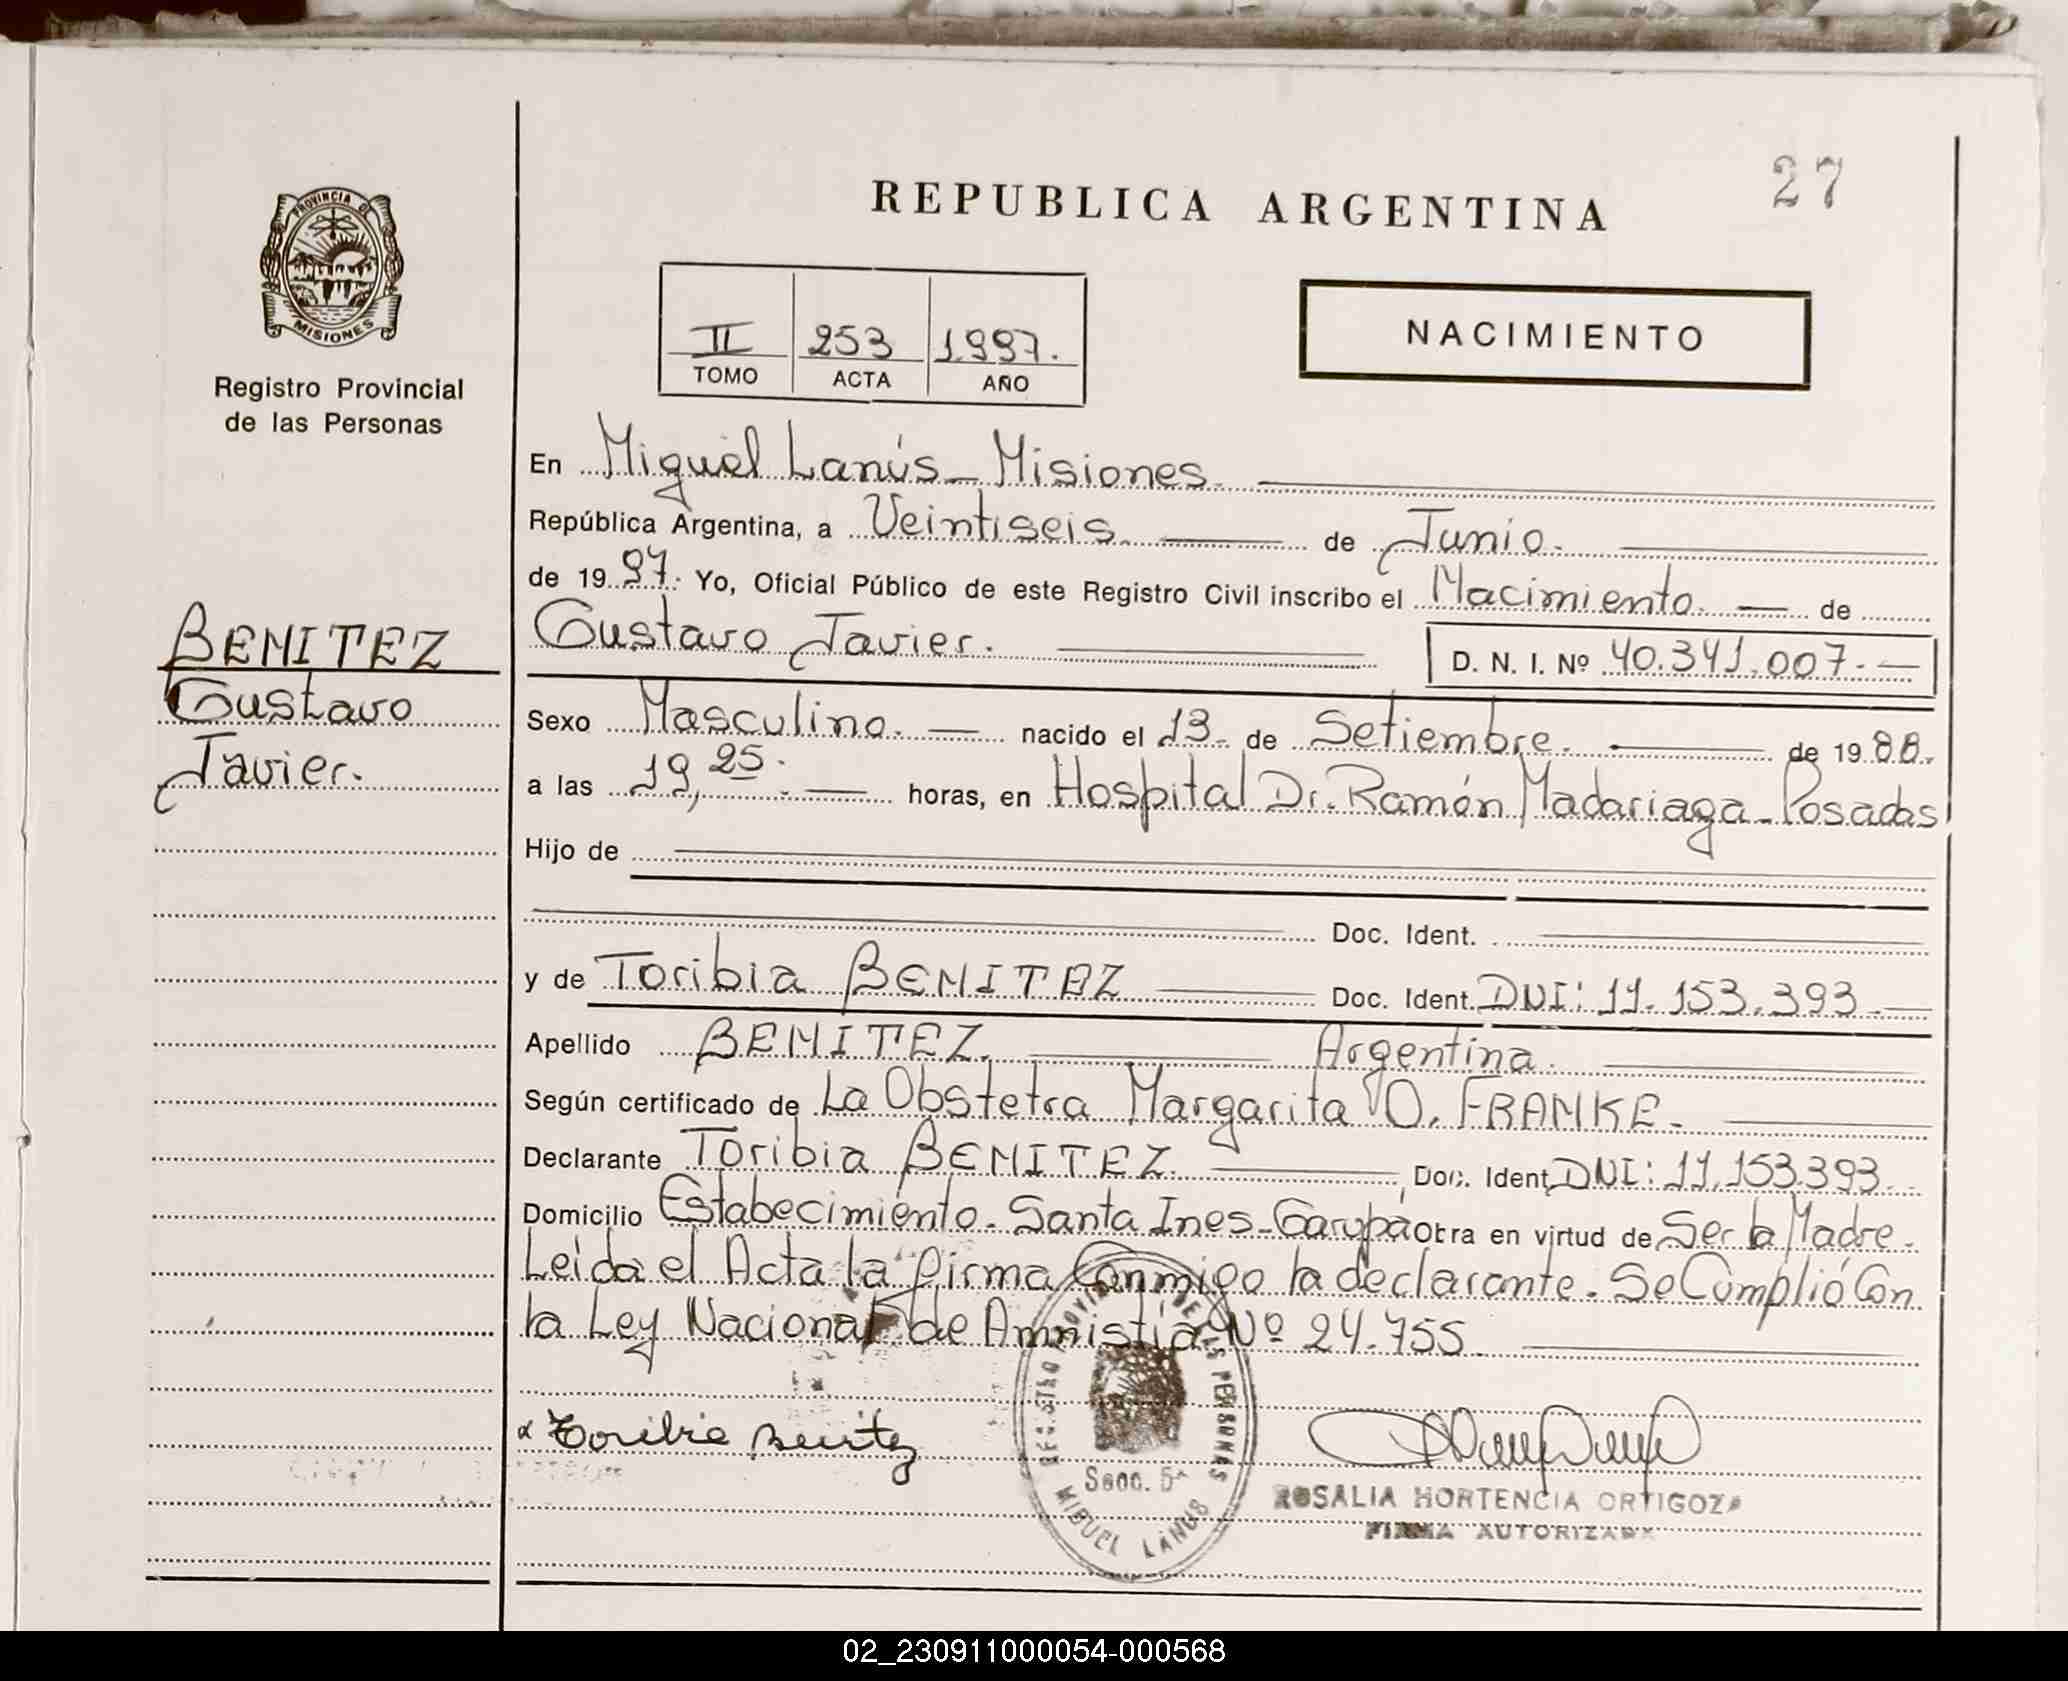 27
REPUBLICA ARGENTINA
PROVINCIA DE
MISIONES
Registro Provincial
de las Personas
II 253 1.997.
TOMO ACTA AÑO
NACIMIENTO
En Miguel Lanús - Misiones.
República Argentina, a Veintiseis de Junio.
de 19 97. Yo, Oficial Público de este Registro Civil inscribo el Nacimiento. de
Gustavo Javier. D. N. I. Nº 40.341.007.-
BENITEZ
Gustavo
Javier.
Sexo Masculino. nacido el 13. de Setiembre. de 19 88.
a las 19,25. horas, en Hospital Dr. Ramón Madariaga - Posadas
Hijo de
Doc. Ident.
y de Toribia BENITEZ Doc. Ident. DNI: 11.153.393.
Apellido BENITEZ. Argentina.
Según certificado de La Obstetra Margarita O. FRANKE.
Declarante Toribia BENITEZ. Doc. Ident. DNI: 11.153.393.
Domicilio Estabecimiento. Santa Ines - Garupá Obra en virtud de Ser la Madre.
Leida el Acta la firma Conmigo la declarante. Se Cumplió Con
la Ley Nacional de Amnistía Nº 24.755.
Toribia Benitez
REGISTRO PROVINCIAL DE LAS PERSONAS
Secc. 5ª
MIGUEL LANUS
ROSALIA HORTENCIA ORTIGOZA
FIRMA AUTORIZADA
02_230911000054-000568